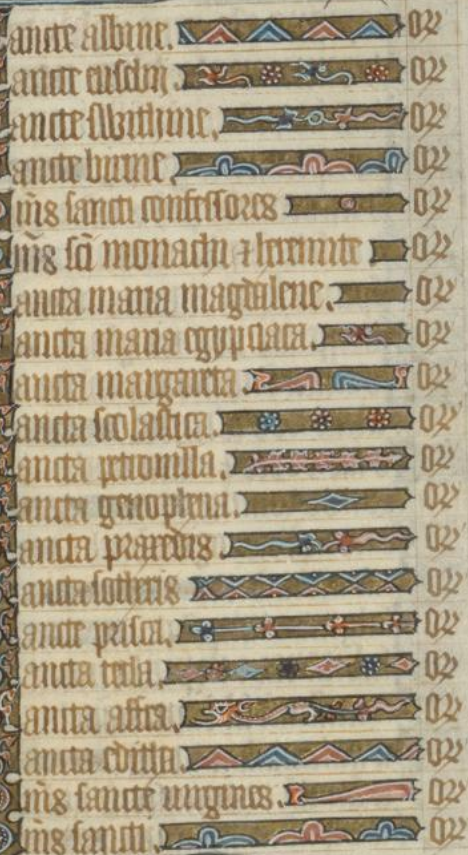 ancte albine. Or
ancte eusebii. Or
ancte swithine. Or
ancte birine. Or
ms sancti confessores Or
ms sci monachi ⁊ heremite Or
ancta maria magdalene. Or
ancta maria egypciaca. Or
ancta margareta Or
ancta scolastica. Or
ancta petronilla. Or
ancta genophena. Or
ancta praxedis Or
ancta sotheris Or
ancte prisca. Or
ancta tecla. Or
ancta affra. Or
ancta editha. Or
ms sancte uirgines. Or
ms sancti. Or